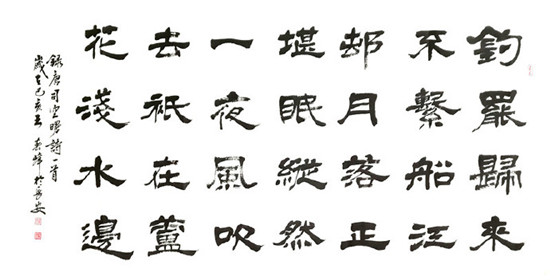 釣罷歸來
不繫船江
邨月落正
堪眠縱然
一夜風吹
去衹在蘆
花淺水邊
錄唐司空曙詩一首
歲在己亥於長安